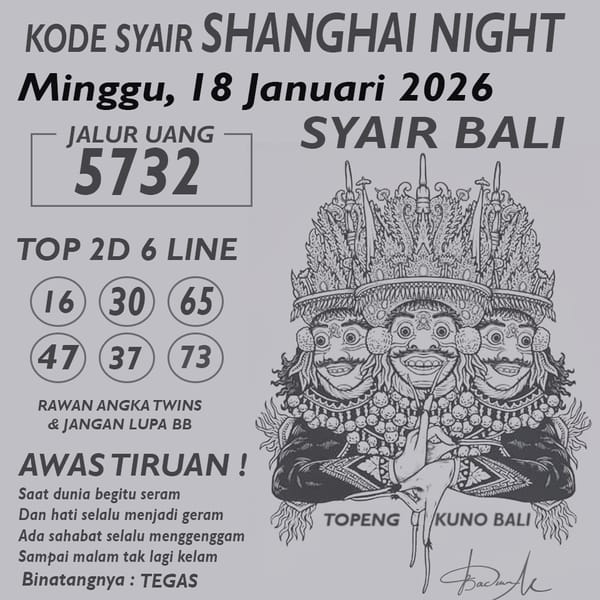 KODE SYAIR SHANGHAI NIGHT
Minggu, 18 Januari 2026
JALUR UANG
5732
SYAIR BALI
TOP 2D 6 LINE
16 30 65
47 37 73
RAWAN ANGKA TWINS
& JANGAN LUPA BB
AWAS TIRUAN !
Saat dunia begitu seram
Dan hati selalu menjadi geram
Ada sahabat selalu menggenggam
Sampai malam tak lagi kelam
Binatangnya : TEGAS
TOPENG KUNO BALI